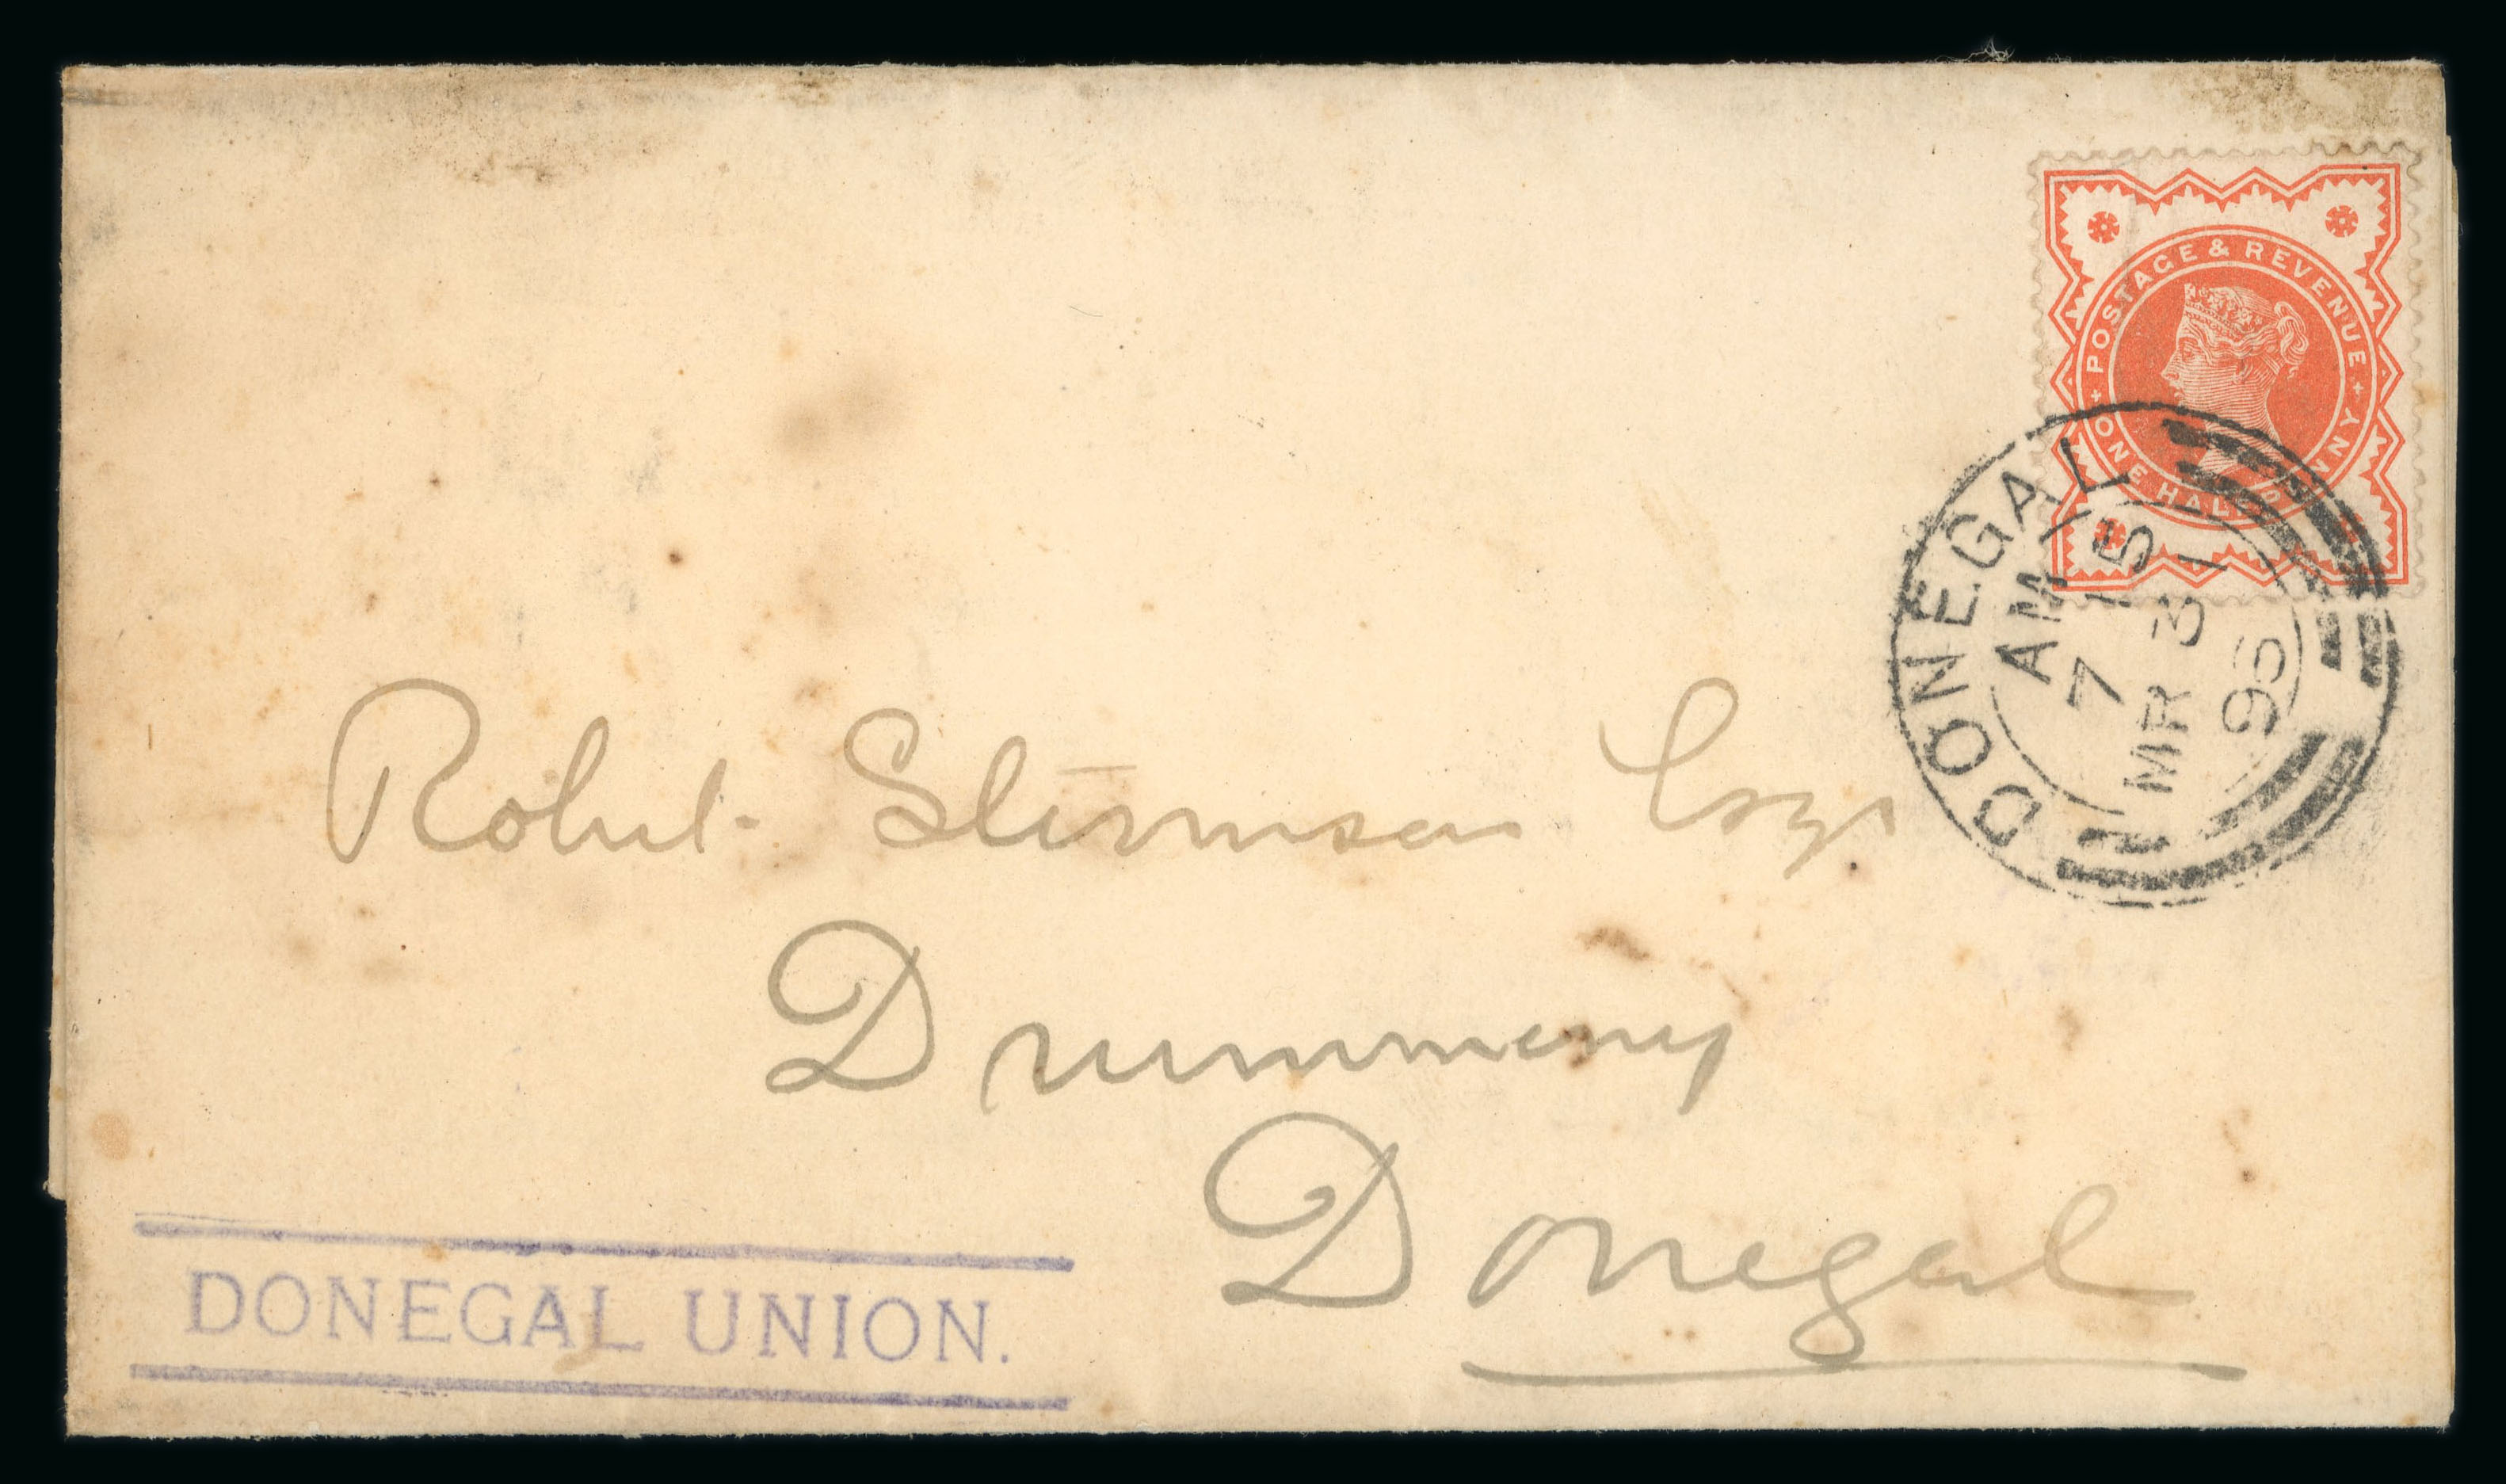 POSTAGE & REVENUE
ONE HALFPENNY
DONEGAL
AM
7 15
MR 31
96
Robert Esqr
Drummeny
Donegal
DONEGAL UNION.